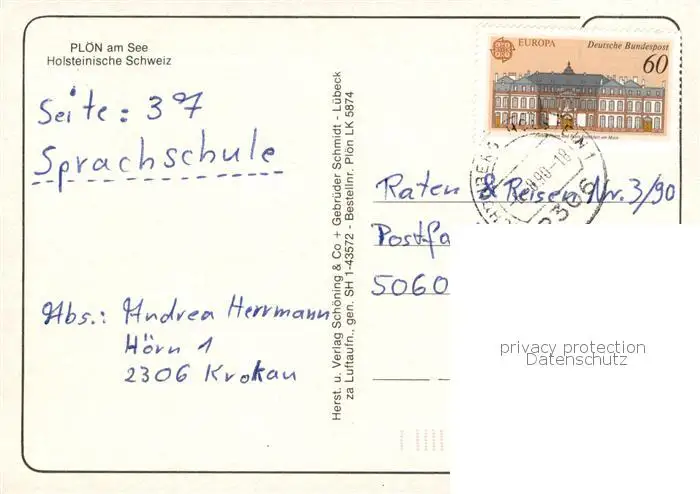 PLÖN am See
Holsteinische Schweiz
Seite: 37
Sprachschule
Abs.: Andrea Herrmann
Hörn 1
2306 Krokau
Herst. u. Verlag Schöning & Co + Gebrüder Schmidt - Lübeck
za Luftaufn., gen. SH 1-43572 - Bestellnr. Plön LK 5874
EUROPA
Deutsche Bundespost
60
90-18
2306
Raten & Reisen Nr. 3/90
Postfa
5060
privacy protection
Datenschutz